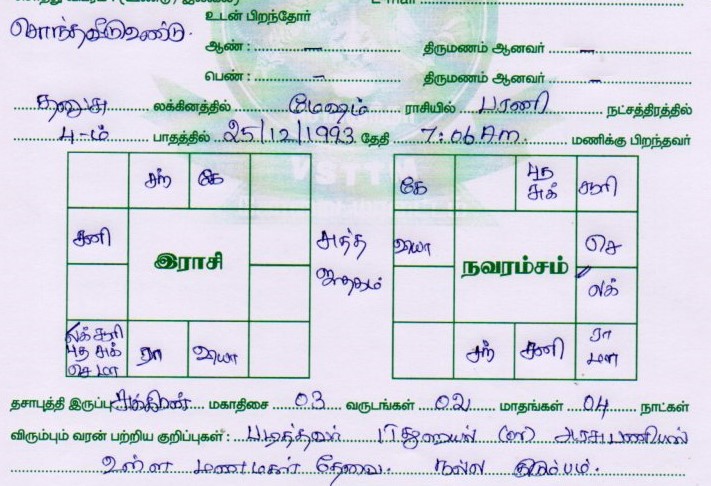 சொந்தவீடுஉண்டு.
உடன் பிறந்தோர்
ஆண் : – திருமணம் ஆனவர் : –
பெண் : – திருமணம் ஆனவர் : –
தனுசு லக்கினத்தில் மேஷம் ராசியில் பரணி நட்சத்திரத்தில்
4-ம் பாதத்தில் 25/12/1993 தேதி 7:06 Am மணிக்கு பிறந்தவர்
சந் கே
சனி
இராசி
லக் சூரி
புத சுக்
செ மா
ரா வியா
சுத்த
ஜாதகம்
கே புத சுக் சூரி
வியா செ
நவாம்சம்
லக்
சந் சனி ரா மா
தசாபுத்தி இருப்பு சுக்கிரன் மகாதிசை 03 வருடங்கள் 02 மாதங்கள் 04 நாட்கள்
விரும்பும் வரன் பற்றிய குறிப்புகள் : படித்தவர் (or) அரசு பணியில்
உள்ள மணமகன் தேவை. நல்ல குடும்பம்.